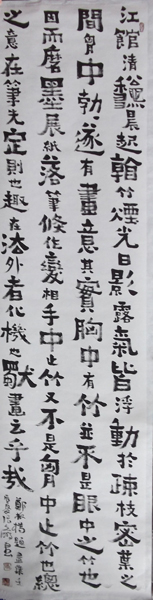 江館清龝晨起看竹煙光日影露氣皆浮動於疎枝密葉之
間胷中勃遂有畫意其實胸中有竹並不是眼中之竹也
因而磨墨展紙落筆倏作變相手中之竹又不是胷中之竹也總
之意在筆先定則也趣在法外者化機也獨畫云乎哉
鄭板橋題畫